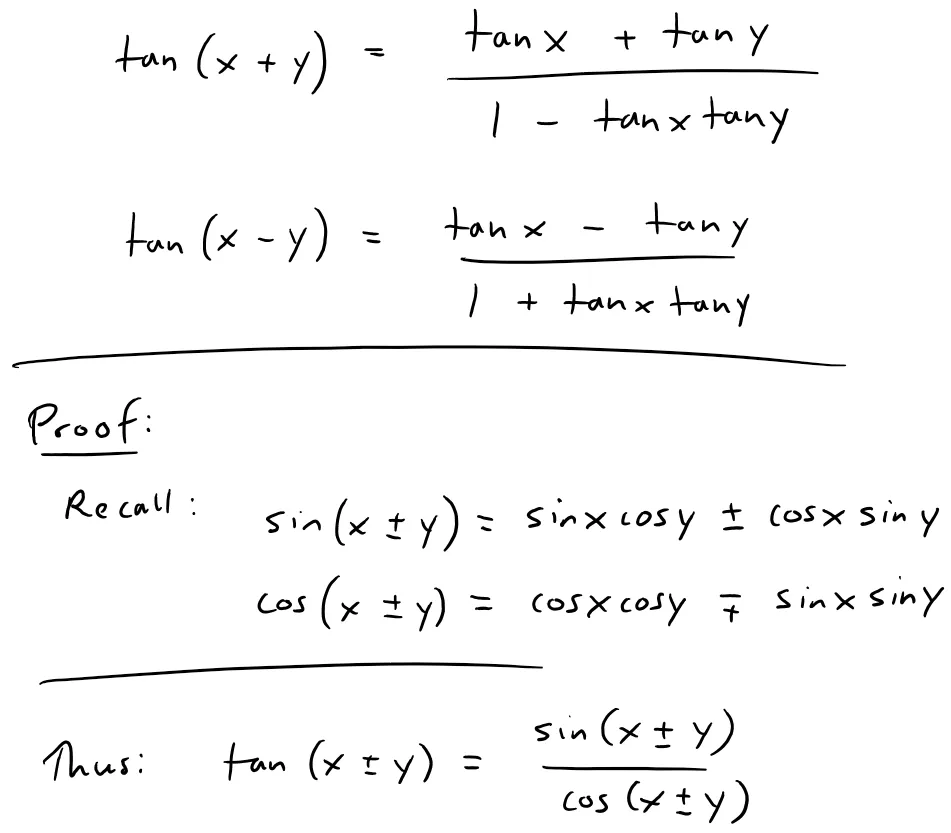 tan (x + y) = (tan x + tan y) / (1 - tan x tan y)
tan (x - y) = (tan x - tan y) / (1 + tan x tan y)
Proof:
Recall: sin(x ± y) = sinx cosy ± cosx siny
cos(x ± y) = cosx cosy ∓ sinx siny
Thus: tan (x ± y) = sin(x ± y) / cos(x ± y)